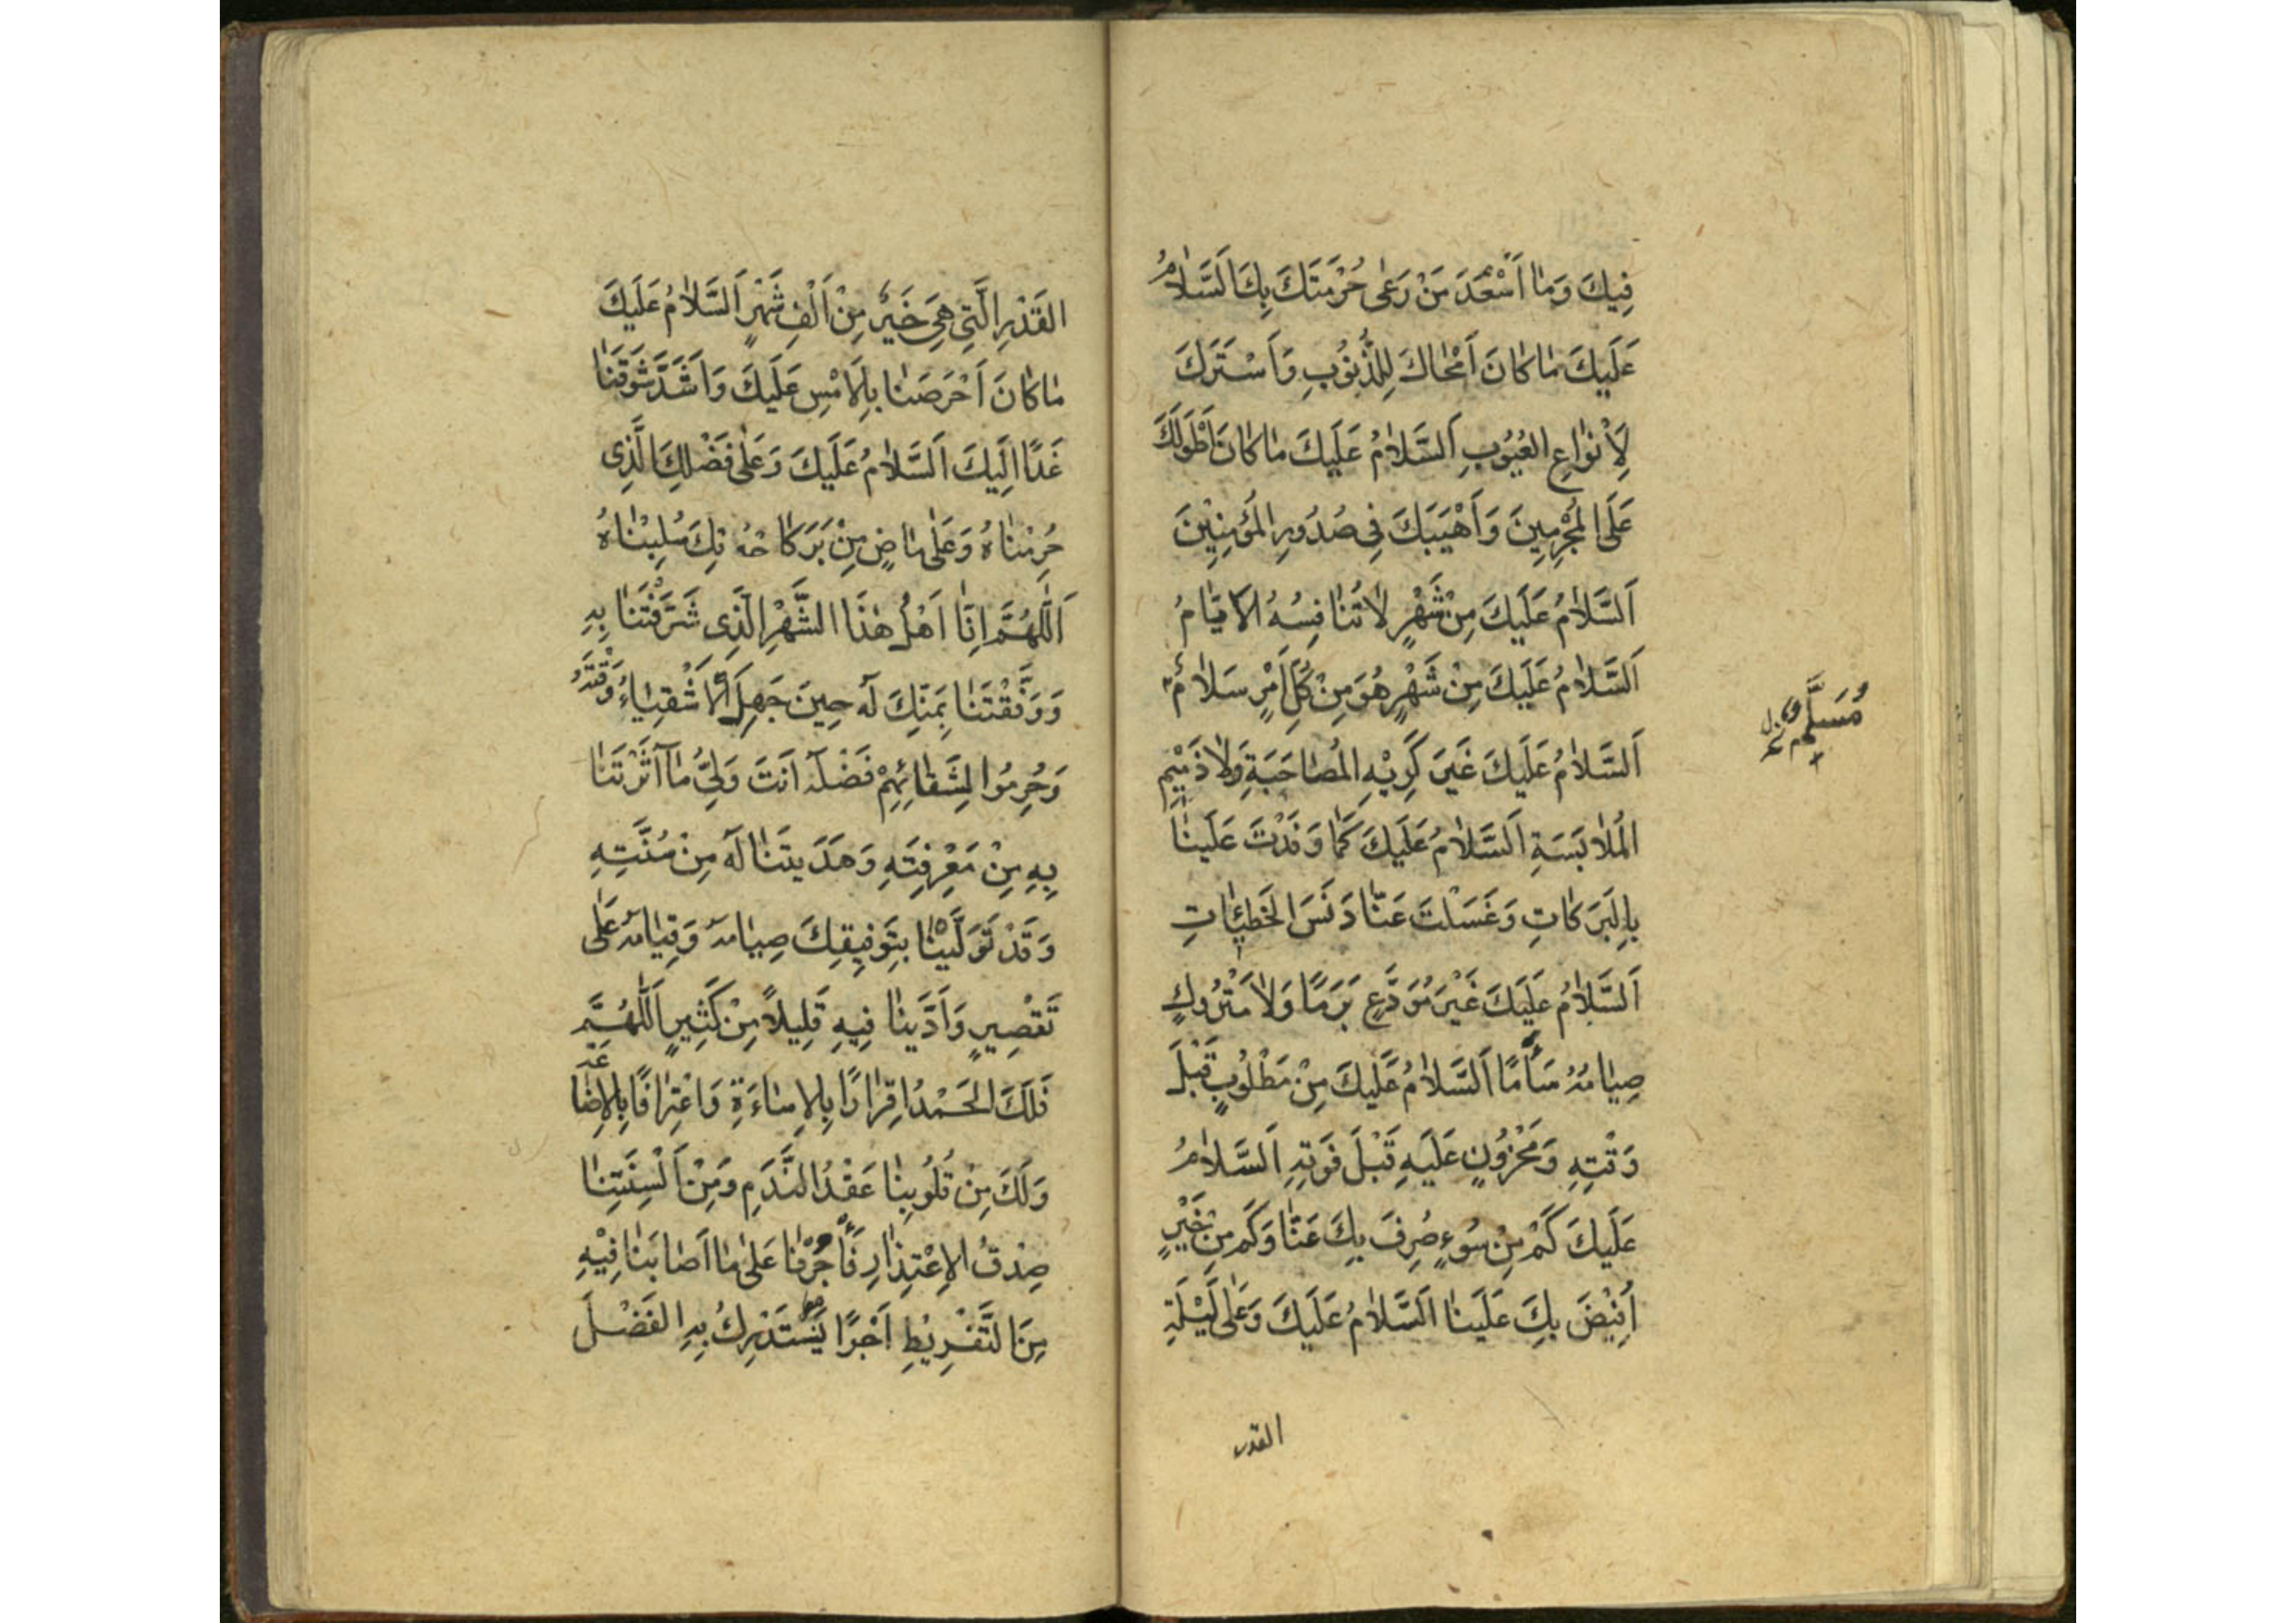 فِيكَ وَمٰا اَسْعَدَ مَنْ رَعٰى حُرْمَتَكَ بِكَ اَلسَّلاٰمُ
عَلَيكَ مٰا كٰانَ اَمْحٰاكَ لِلذُّنُوُبِ وَاَسْتَرَكَ
لِاَنْوٰاعِ العُيُوُبِ اَلسَّلاٰمُ عَلَيكَ مٰا كٰانَ اَطْوَلَكَ
عَلَى المُجْرِمِينَ وَاَهْيَبَكَ فِى صُدُورِ المُؤْمِنِيْنَ
اَلسَّلاٰمُ عَلَيكَ مِنْ شَهْرٍ لاٰ تُنٰافِسُهُ الاَيّٰامُ
اَلسَّلاٰمُ عَلَيكَ مِنْ شَهْرٍ هُوَ مِنْ كُلِّ اَمْرٍ سَلاٰمٌ
مُسَلَّمٌ
اَلسَّلاٰمُ عَلَيكَ غَيرَ كَرِيْهِ المُصٰاحَبَةِ وَلاٰ ذَمِيْمِ
المُلاٰبَسَةِ اَلسَّلاٰمُ عَلَيكَ كَمٰا وَفَدْتَ عَلَينٰا
بِالبَرَكٰاتِ وَغَسَلْتَ عَنّٰا دَنَسَ الخَطِيئٰاتِ
اَلسَّلاٰمُ عَلَيكَ غَيْرَ مُوَدَّعٍ بَرَمًا وَلاٰ مَتْرُوكٍ
صِيٰامُهُ سَأَمًا اَلسَّلاٰمُ عَلَيكَ مِنْ مَطْلُوُبٍ قَبْلَ
وَقْتِهِ وَمَحْزُوُنٍ عَلَيهِ قَبْلَ فَوتِهِ اَلسَّلاٰمُ
عَلَيكَ كَمْ مِنْ سُوُءٍ صُرِفَ بِكَ عَنّٰا وَكَم مِنْ خَيْرٍ
اُفِيْضَ بِكَ عَلَينٰا اَلسَّلاٰمُ عَلَيكَ وَعَلٰى لَيْلَةِ
القدر
القَدْرِ الَّتِى هِىَ خَيرٌ مِنْ اَلْفِ شَهْرٍ اَلسَّلاٰمُ عَلَيكَ
مٰا كٰانَ اَحْرَصَنٰا بِالاَمْسِ عَلَيكَ وَاَشَدَّ شَوقَنٰا
غَدًا اِلَيكَ اَلسَّلاٰمُ عَلَيكَ وَعَلٰى فَضْلِكَ الَّذِى
حُرِمْنٰاهُ وَعَلٰى مٰاضٍ مِنْ بَرَكٰا تِكَ سُلِبْنٰاهُ
اَللّٰهُمَّ اِنّٰا اَهْلُ هٰذَا الشَّهْرِ الَّذِى شَرَّفْتَنٰا بِهِ
وَوَفَّقْتَنٰا بِمَنِّكَ لَهُ حِينَ جَهِلَ الاَشْقِيٰاءُ وَقْتَهُ
وَحُرِمُوا لِشَقٰائِهِمْ فَضْلَهُ اَنتَ وَلِىُّ مٰا آثَرْتَنٰا
بِهِ مِنْ مَعْرِفَتِهِ وَهَدَيتَنٰا لَهُ مِنْ سُنَّتِهِ
وَقَدْ تَوَلَّينٰا بِتَوفِيقِكَ صِيٰامَهُ وَقِيٰامَهُ عَلٰى
تَقْصِيرٍ وَاَدَّينٰا فِيهِ قَلِيلاً مِنْ كَثِيرٍ اَللّٰهُمَّ
فَلَكَ الحَمْدُ اِقرٰارًا بِالاِسٰاءَةِ وَاعْتِرٰافًا بِالاِضٰاعَةِ
وَلَكَ مِنْ قُلُوبِنٰا عَقْدُ النَّدَمِ وَمِنْ اَلْسِنَتِنٰا
صِدْقُ الاِعْتِذٰارِ فَأْجُرْنٰا عَلٰى مٰا اَصٰابَنٰا فِيْهِ
مِنَ التَّفْرِيْطِ اَجْرًا نَسْتَدْرِكُ بِهِ الفَضْلَ